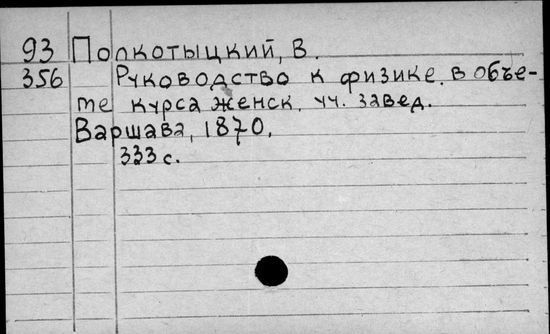 93 Полкотыцкий, В.
356 Руководство к физике в объе-
те курса женск. уч. завед.
Варшава, 1870.
333 с.